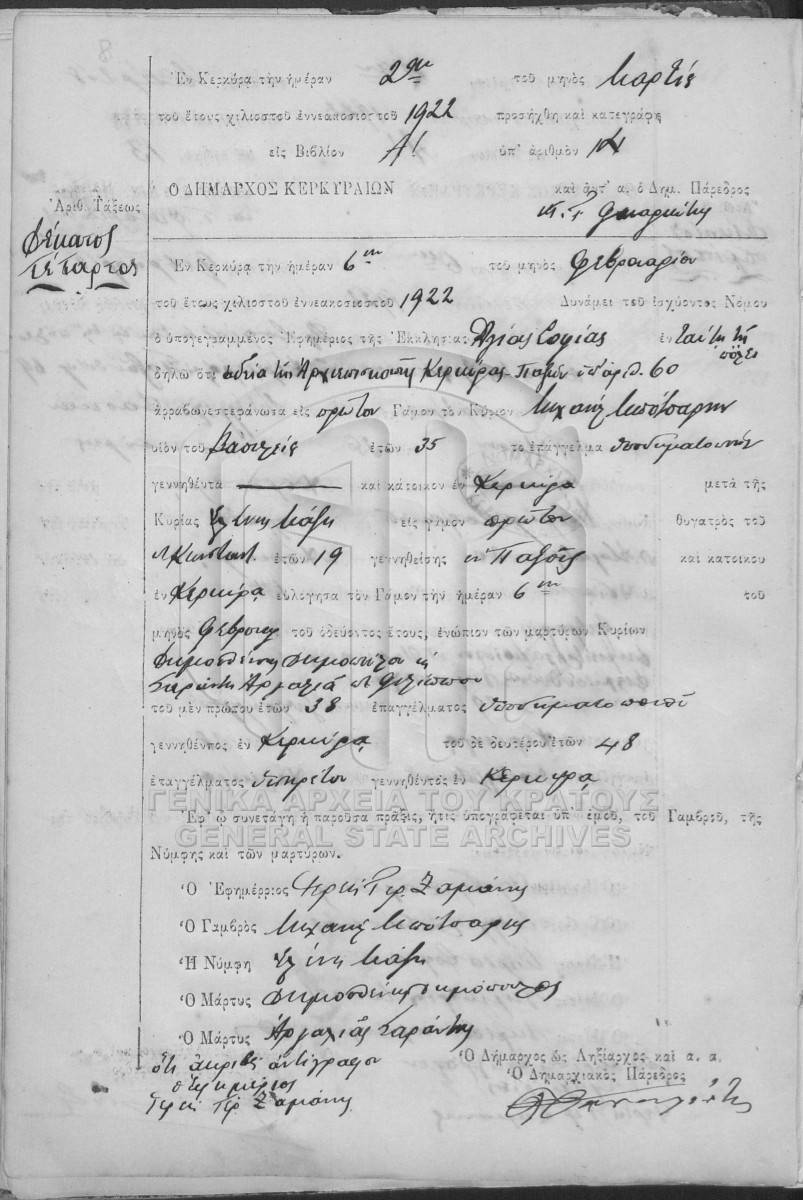 Ἐν Κερκύρᾳ τὴν ἡμέραν 2αν τοῦ μηνὸς Μαρτίου
τοῦ ἔτους χιλιοστοῦ ἐννεακοσιοστοῦ 1922 προσήχθη καὶ κατεγράφη
εἰς Βιβλίον Α! ὑπ' ἀριθμὸν 14
Ο ΔΗΜΑΡΧΟΣ ΚΕΡΚΥΡΑΙΩΝ καὶ ἀντ' α. ὁ Δημ. Πάρεδρος
Ἀριθ. Τάξεως
Δέκατος
τέταρτος
Ἐν Κερκύρᾳ τὴν ἡμέραν 6ην τοῦ μηνὸς Φεβρουαρίου
τοῦ ἔτους χιλιοστοῦ ἐννεακοσιοστοῦ 1922 Δυνάμει τοῦ ἰσχύοντος Νόμου
ὁ ὑπογεγραμμένος Ἐφημέριος τῆς Ἐκκλησίας Ἁγίας Σοφίας ἐν ταύτῃ τῇ πόλει
δηλῶ ὅτι ἀδείᾳ τῆς Ἀρχιεπισκοπῆς Κερκύρας Παξῶν ὑπ' ἀρ. 60
ἀρραβωνεστεράνωσα εἰς πρῶτον Γάμον τὸν Κύριον Μιχαὴλ Μπότσαρην
υἱὸν τοῦ Βασιλείου ἐτῶν 35 τὸ ἐπάγγελμα ὑποδηματοποιὸν
γεννηθέντα καὶ κάτοικον ἐν Κερκύρᾳ μετὰ τῆς
Κυρίας Ἑλένης Μάζη εἰς γάμον πρῶτον θυγατρὸς τοῦ
Κωνσταντ ἐτῶν 19 γεννηθείσης ἐν Παξοῖς καὶ κατοίκου
ἐν Κερκύρᾳ εὐλόγησα τὸν Γάμον τὴν ἡμέραν 6ην τοῦ
μηνὸς Φεβρουαρ τοῦ ὁδεύοντος ἔτους, ἐνώπιον τῶν μαρτύρων Κυρίων
Δημοσθένης Δημοπούλου
Σαράντη Ἀρμαλιᾶ Φιλίππου
τοῦ μὲν πρώτου ἐτῶν 38 ἐπαγγέλματος ὑποδηματοποιοῦ
γεννηθέντος ἐν Κερκύρᾳ τοῦ δὲ δευτέρου ἐτῶν 48
ἐπαγγέλματος ὑπηρέτου γεννηθέντος ἐν Κέρκυρα
ΓΕΝΙΚΑ ΑΡΧΕΙΑ ΤΟΥ ΚΡΑΤΟΥΣ
Ἐφ' ᾧ συνετάγη ἡ παροῦσα πρᾶξις, ἥτις ὑπογράφεται ὑπ' ἐμοῦ, τοῦ Γαμβροῦ, τῆς
GENERAL STATE ARCHIVES
Νύμφης καὶ τῶν μαρτύρων.
Ὁ Ἐφημέρριος
Ὁ Γαμβρὸς Μιχαὴλ Μπότσαρης
Ἡ Νύμφη Ἑλένη Μάζη
Ὁ Μάρτυς Δημοσθένης Δημόπουλος
Ὁ Μάρτυς Ἀρμαλιᾶς Σαράντης
ὅτι ἀκριβὲς ἀντίγραφον
ὁ ἐφημέριος
Ὁ Δήμαρχος ὡς Ληξίαρχος καὶ α. α.
Ὁ Δημαρχιακὸς Πάρεδρος